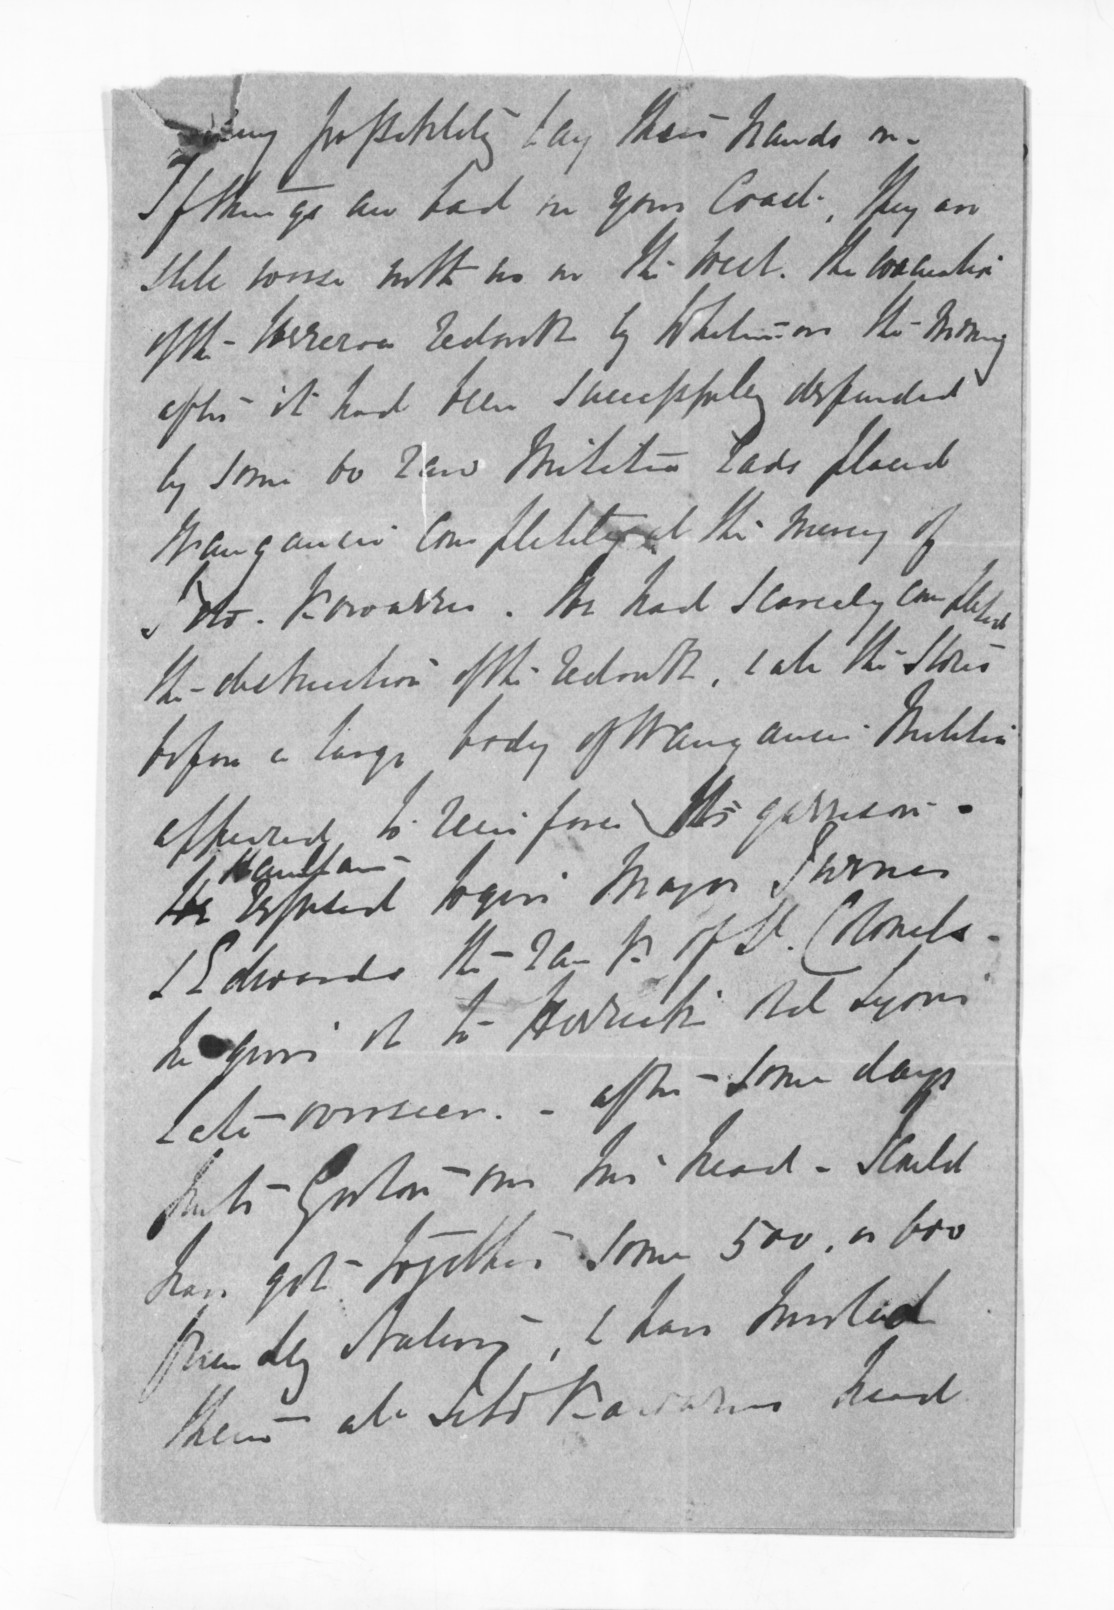 possibility lay their hands on.
If things are bad on your Coast, they are
still worse with us on the West. The evacuation
of the Wereroa Redoubt by Whitmore the morning
after it had been successfully defended
by some 60 raw Militia lads placed
Wanganui completely at the mercy of
Tito Kowarru. He had scarcely completed
the destruction of the redoubt, & all the Stores
before a large body of Wanganui Militia
appeared to reinforce the garrison.
Haultain
refused to give Major Turner
& Edwards the rank of Lt. Colonels.
he gives it to Herrick old Lyons
late overseer. - after some days
puts Gorton on his head. I could
have got together some 500, or 600
friendly Natives, & have
them at Tito Kowarrus head